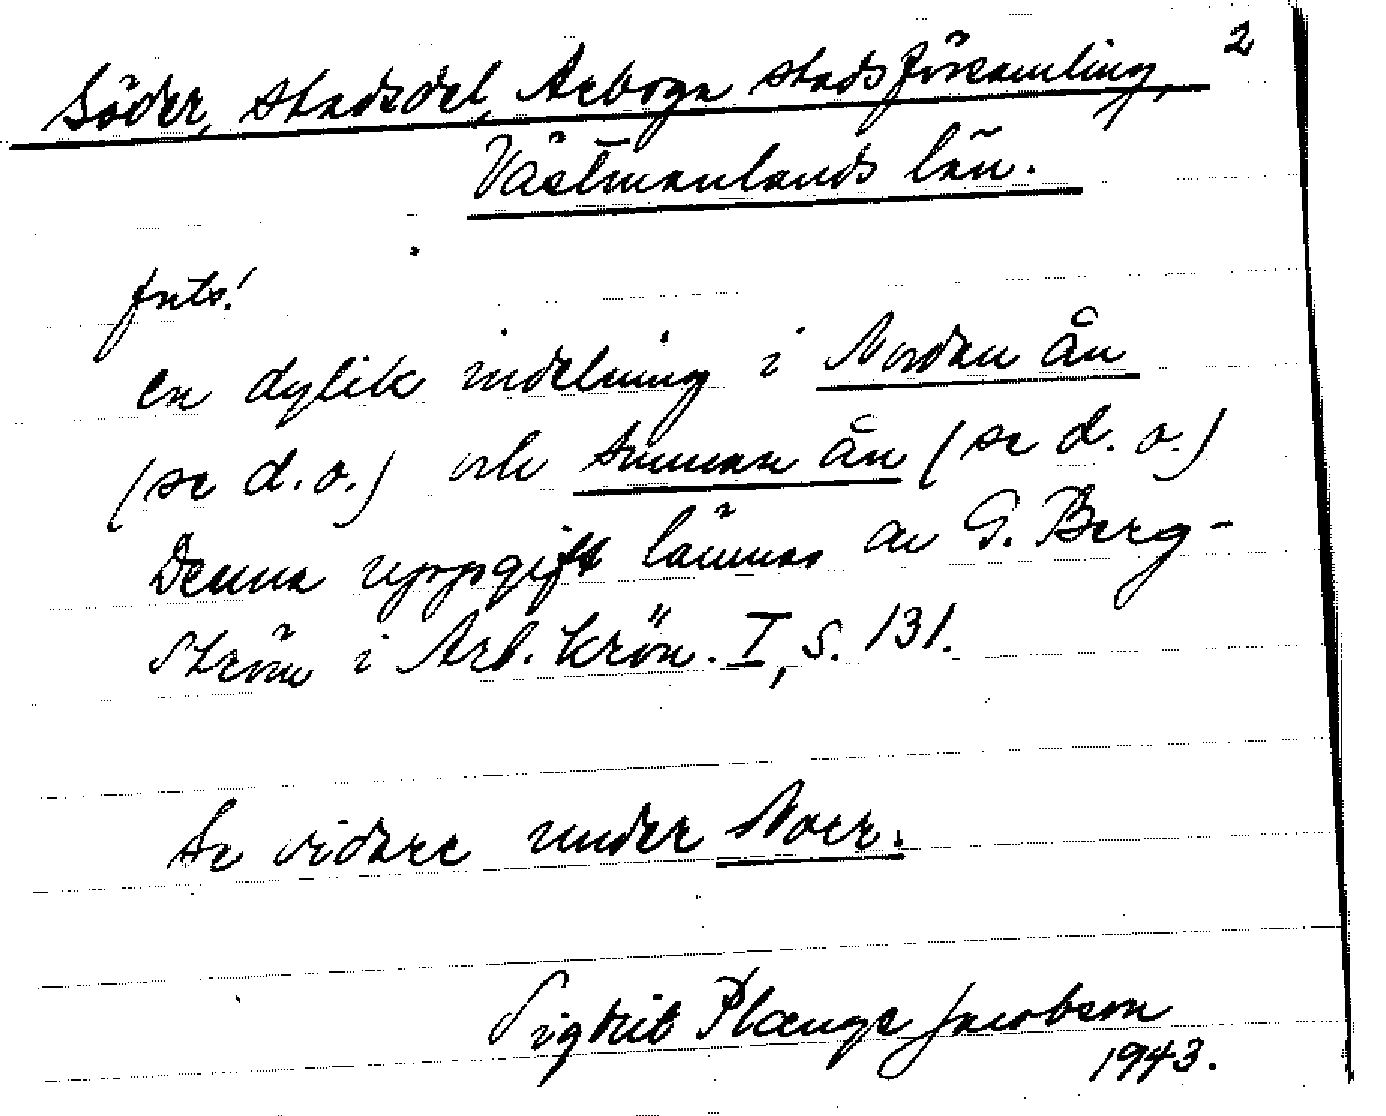 2
Söder, stadsdel, Arboga stadsförsamling,
Västmanlands län.
forts!
en dylik indelning i Nordan ån
(se d.o.) och Sunnan ån (se d.o.)
Denna uppgift lämnas av G. Berg-
ström i Arb. krön. I, s. 131.
Se vidare under Norr.
Sigbrit Plænge Jacobson
1943.